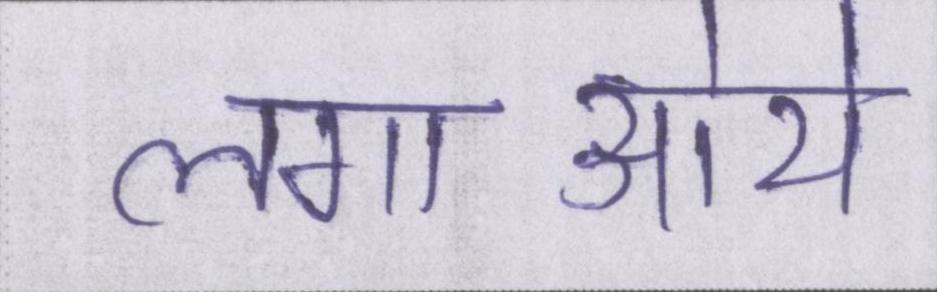 लगा ओये